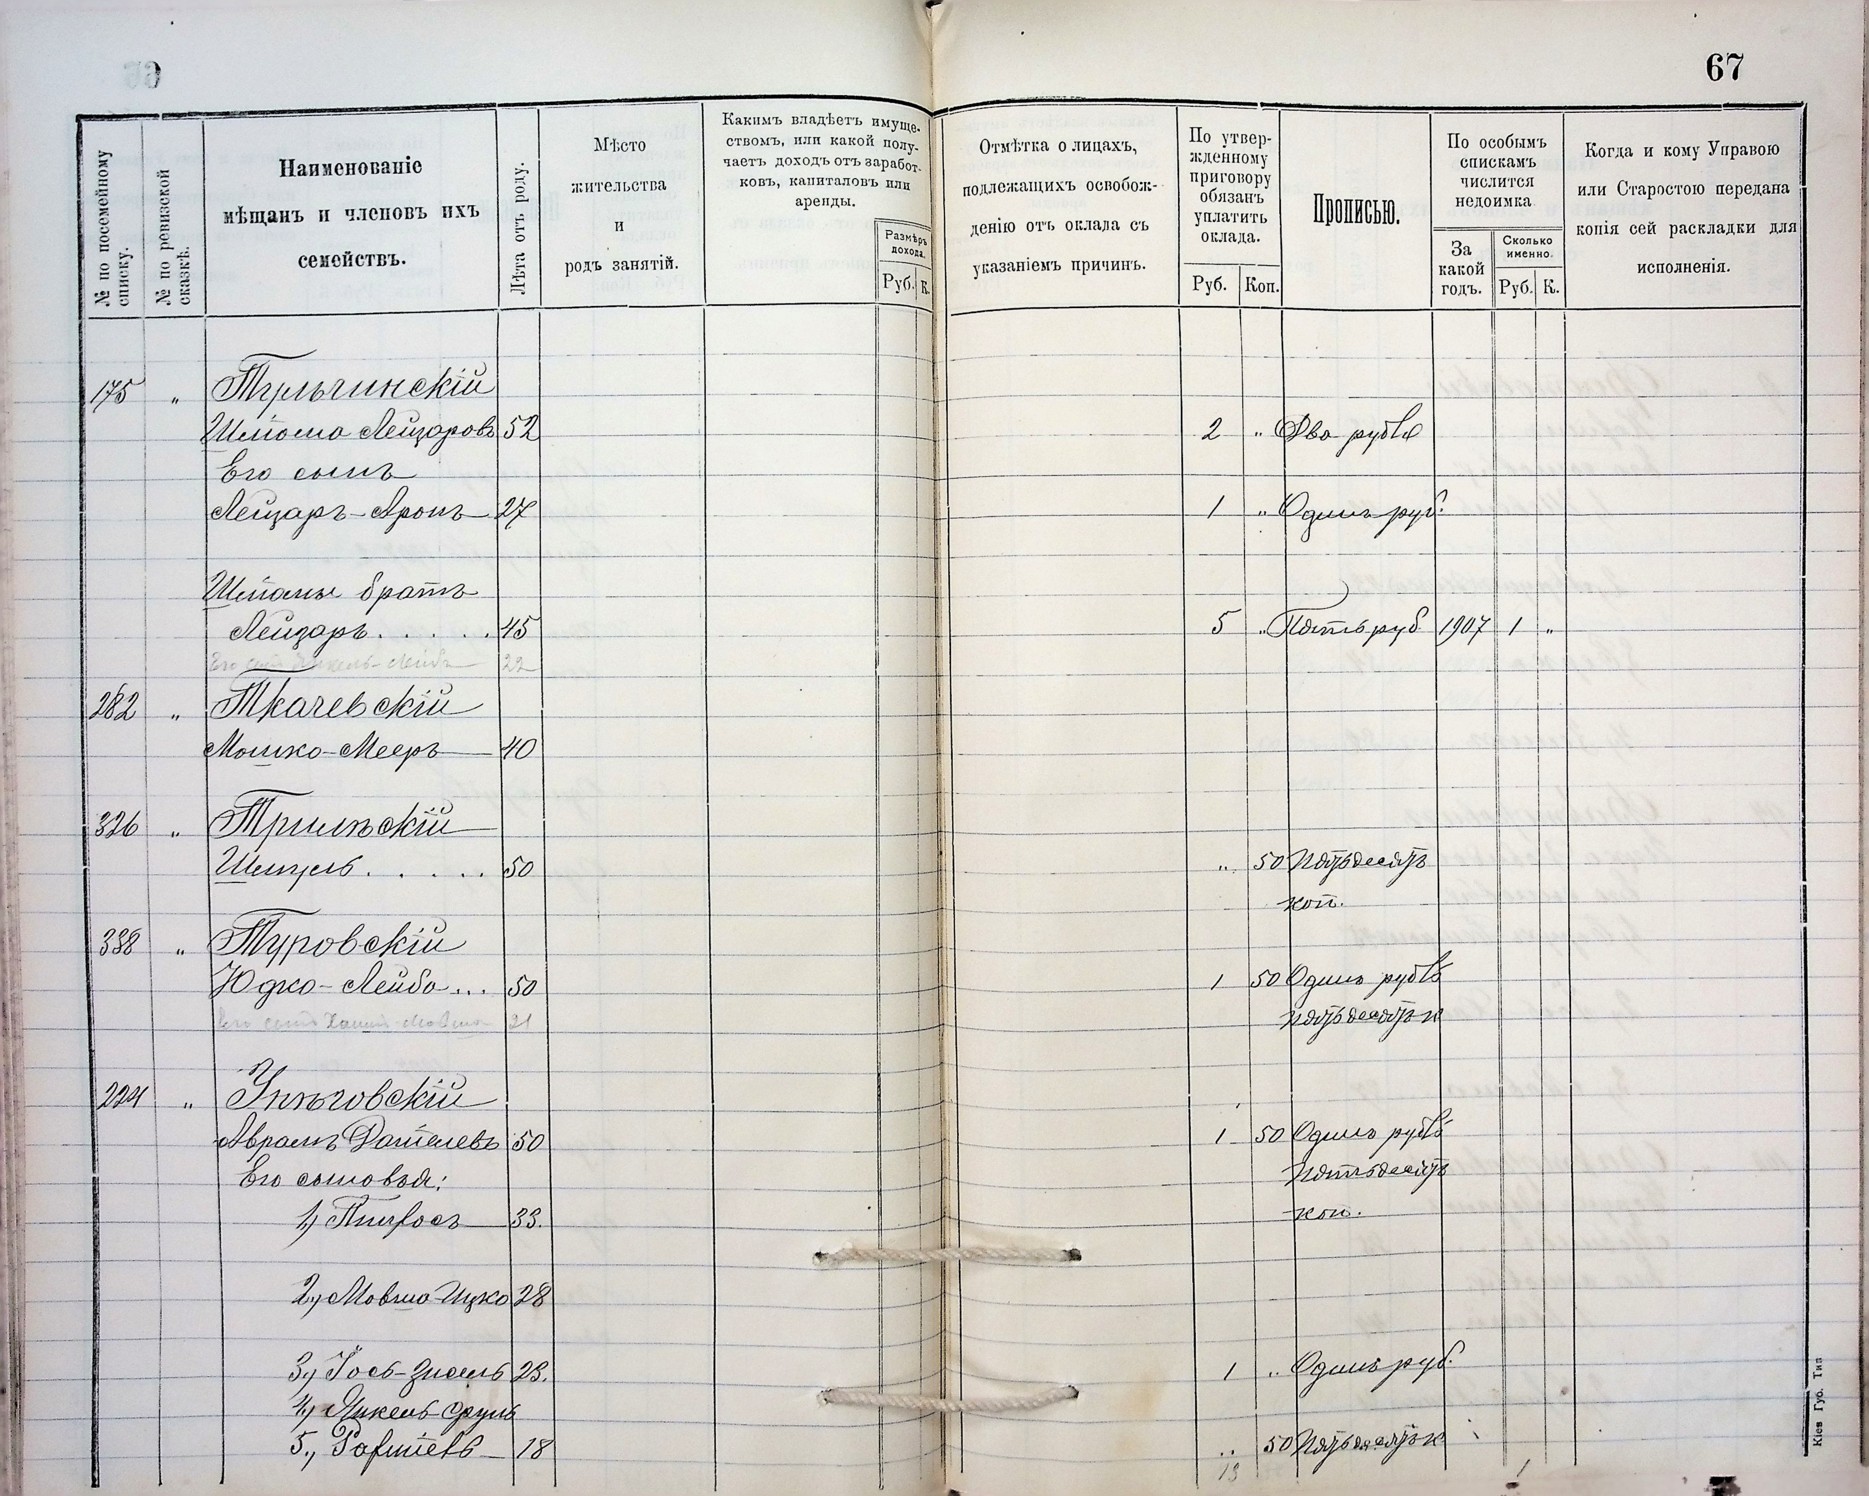 67
№ по посемейному списку.
№ по ревизской сказкѣ.
Наименованіе
мѣщанъ и членовъ ихъ
семействъ.
Лѣта отъ роду.
Мѣсто
жительства
и
родъ занятій.
Какимъ владѣетъ имуще-
ствомъ, или какой полу-
чаетъ доходъ отъ заработ-
ковъ, капиталовъ или
аренды.
Размѣръ
дохода.
Руб. К.
Отмѣтка о лицахъ,
подлежащихъ освобож-
денію отъ оклада съ
указаніемъ причинъ.
По утвер-
жденному
приговору
обязанъ
уплатить
оклада.
Руб. Коп.
Прописью.
По особымъ
спискамъ
числится
недоимка
За
какой
годъ.
Сколько
именно.
Руб. К.
Когда и кому Управою
или Старостою передана
копія сей раскладки для
исполненія.
175 " Тульчинскій
Шліома Лейзаровъ 52 2 " Два рубля
Его сынъ
Лейзаръ-Аронъ 27 1 " Одинъ руб.
Шліомы братъ
Лейзаръ . . . . . 45 5 " Пять руб. 1907 1 "
Его сынъ 22
282 " Ткачевскій
Мошко-Мееръ 40
326 " Трилѣскій
Шмуль . . . . . 50 " 50 Пятьдесятъ
коп.
338 " Туровскій
Юдко-Лейба ... 50 1 50 Одинъ рубль
пятьдесятъ к
Его сынъ 21
224 " Унѣговскій
Аврамъ 50 1 50 Одинъ рубль
Его сыновья: пятьдесятъ
1, Пинхосъ 33. коп.
2, Мовша Ицко 28
3, Іось-Зисель 23. 1 " Одинъ руб.
4, Янкель Сруль
5., 18 " 50 Пятьдесятъ к
13 1
Кіев Губ. Тип